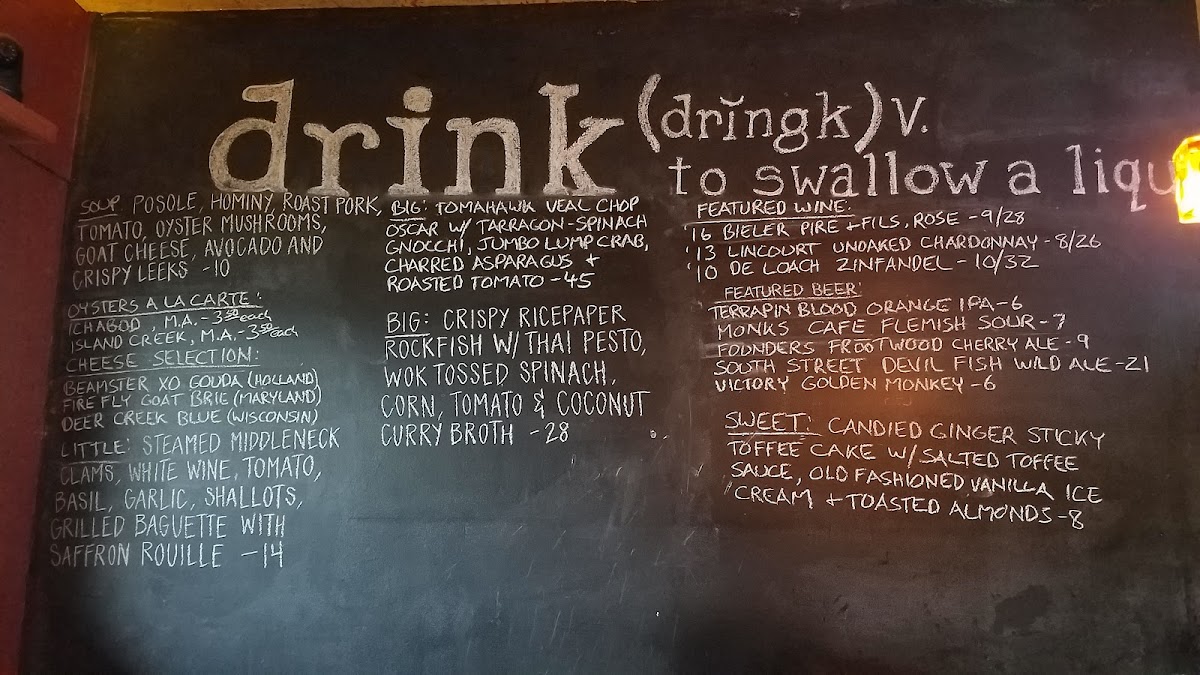 drink (drĭngk) v.
to swallow a liqu
SOUP: POSOLE, HOMINY, ROAST PORK,
TOMATO, OYSTER MUSHROOMS,
GOAT CHEESE, AVOCADO AND
CRISPY LEEKS -10
OYSTERS A LA CARTE:
ICHABOD, M.A. - 3.50 each
ISLAND CREEK, M.A. - 3.50 each
CHEESE SELECTION:
BEAMSTER XO GOUDA (HOLLAND)
FIRE FLY GOAT BRIE (MARYLAND)
DEER CREEK BLUE (WISCONSIN)
LITTLE: STEAMED MIDDLENECK
CLAMS, WHITE WINE, TOMATO,
BASIL, GARLIC, SHALLOTS,
GRILLED BAGUETTE WITH
SAFFRON ROUILLE -14
BIG: TOMAHAWK VEAL CHOP
OSCAR W/ TARRAGON-SPINACH
GNOCCHI, JUMBO LUMP CRAB,
CHARRED ASPARAGUS +
ROASTED TOMATO - 45
BIG: CRISPY RICEPAPER
ROCKFISH W/ THAI PESTO,
WOK TOSSED SPINACH,
CORN, TOMATO & COCONUT
CURRY BROTH -28
FEATURED WINE:
'16 BIELER PIRE + FILS, ROSE - 9/28
'13 LINCOURT UNOAKED CHARDONNAY - 8/26
'10 DE LOACH ZINFANDEL - 10/32
FEATURED BEER:
TERRAPIN BLOOD ORANGE IPA - 6
MONKS CAFE FLEMISH SOUR - 7
FOUNDERS FROOTWOOD CHERRY ALE - 9
SOUTH STREET DEVIL FISH WILD ALE - 21
VICTORY GOLDEN MONKEY - 6
SWEET: CANDIED GINGER STICKY
TOFFEE CAKE W/ SALTED TOFFEE
SAUCE, OLD FASHIONED VANILLA ICE
CREAM + TOASTED ALMONDS - 8